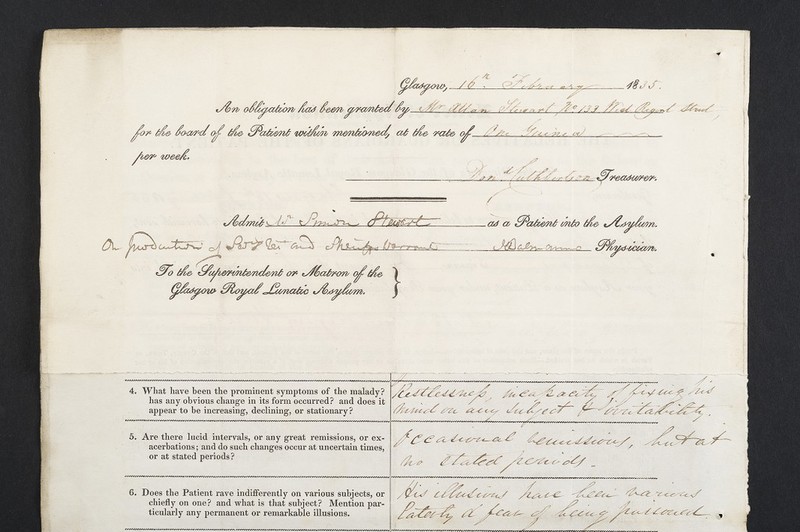 Glasgow, 16th. February 1835.
An obligation has been granted by Mr Allan Stewart No 139 West Regent Street,
for the board of the Patient within mentioned, at the rate of One Guinea
per week.
Don.d Cuthbertson Treasurer.
Admit Mr Simon Stewart as a Patient into the Asylum.
On production of and Sheriffs Warrant Physician.
To the Superintendent or Matron of the
Glasgow Royal Lunatic Asylum.
4. What have been the prominent symptoms of the malady?
has any obvious change in its form occurred? and does it
appear to be increasing, declining, or stationary?
Restlessness, incapacity of fixing his
mind on any Subject & irritability.
5. Are there lucid intervals, or any great remissions, or ex-
acerbations; and do such changes occur at uncertain times,
or at stated periods?
Occasional remissions, but at
no stated periods.
6. Does the Patient rave indifferently on various subjects, or
chiefly on one? and what is that subject? Mention par-
ticularly any permanent or remarkable illusions.
His illusions have been various
Latterly a fear of being poisoned.